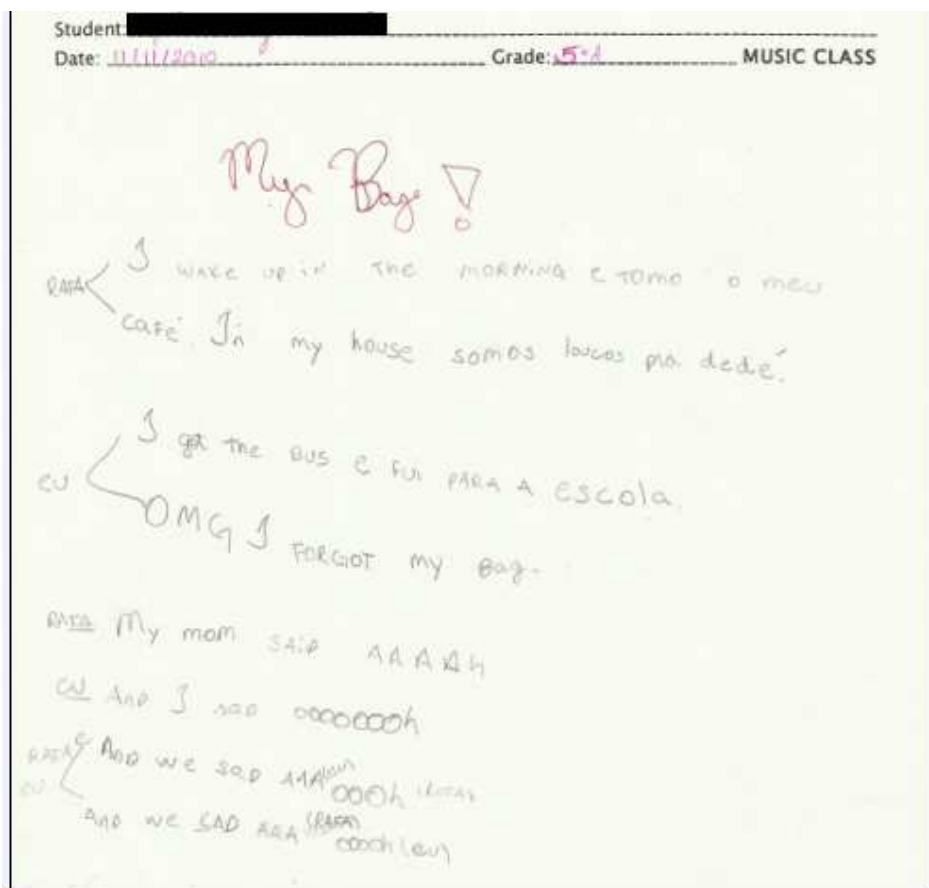 Student:
Date: 11/11/2010 Grade: 5ªA MUSIC CLASS
My Bag!
RAFA
I WAKE UP IN THE MORNING E TOMO O meu
café. In my house somos loucos pra dedé.
EU
I got the BUS E FUI PARA A Escola.
OMG I FORGOT my Bag.
RAFA My mom SAID AAAAh
EU AND I sad ooooooooh
RAFA E EU
AND we sad AAA (eu) OOOh (RAFA)
AND we SAD AAA (RAFA) ooooh (eu)